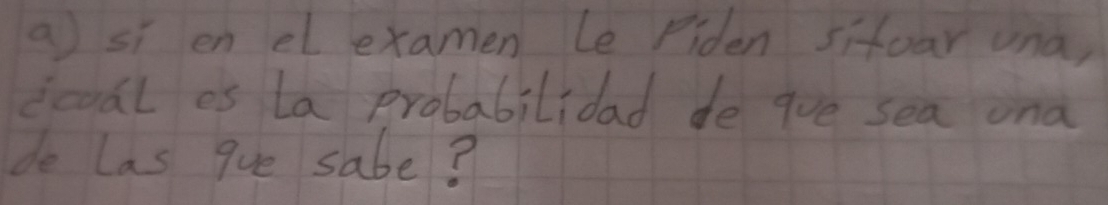 a) si en el examen le Piden situar una,
¿cuál es la probabilidad de que sea una
de las que sabe?